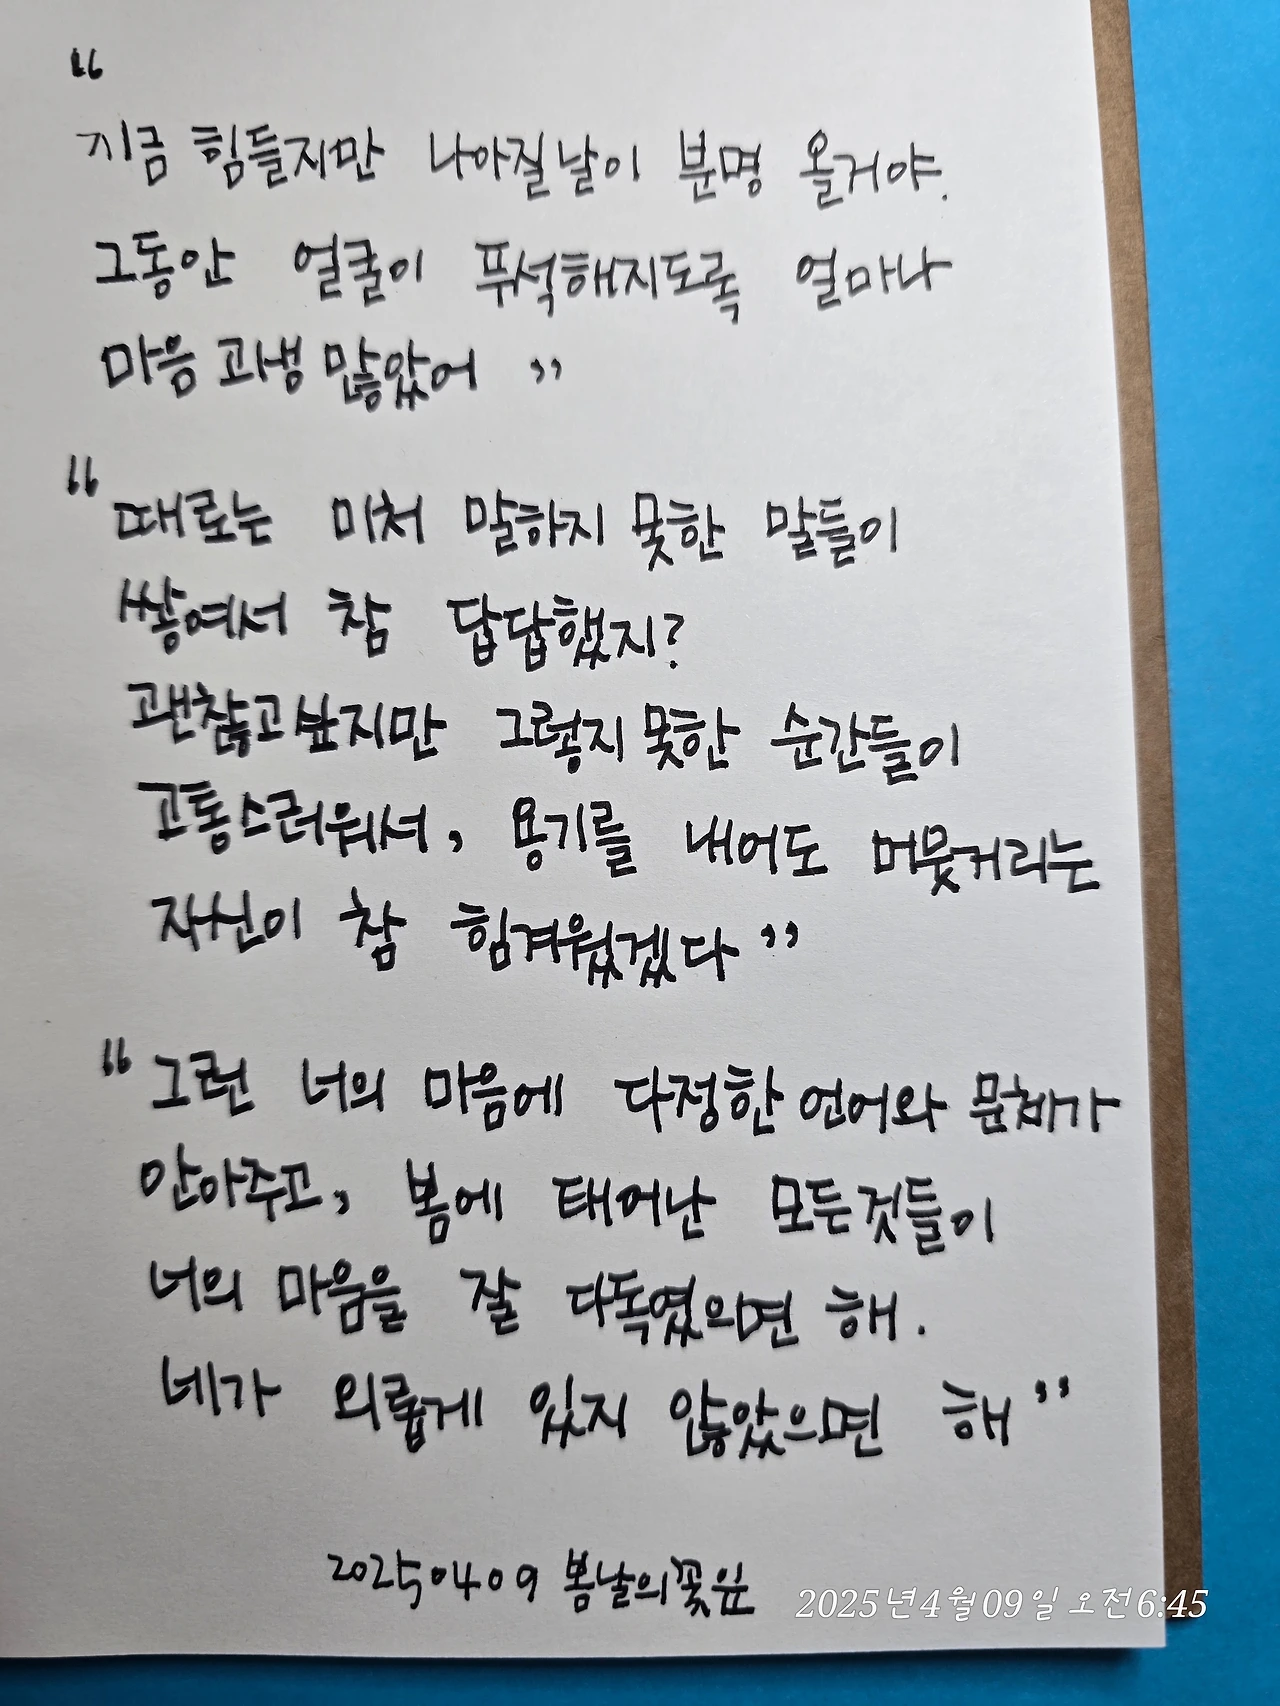 “
지금 힘들지만 나아질날이 분명 올거야.
그동안 얼굴이 푸석해지도록 얼마나
마음 고생 많았어 ”
“ 때로는 미처 말하지 못한 말들이
쌓여서 참 답답했지?
괜찮고싶지만 그렇지 못한 순간들이
고통스러워서, 용기를 내어도 머뭇거리는
자신이 참 힘겨웠겠다 ”
“ 그런 너의 마음에 다정한 언어와 문체가
안아주고, 봄에 태어난 모든것들이
너의 마음을 잘 다독였으면 해.
네가 외롭게 있지 않았으면 해 ”
20250409 봄날의꽃잎
2025년4월09일 오전6:45